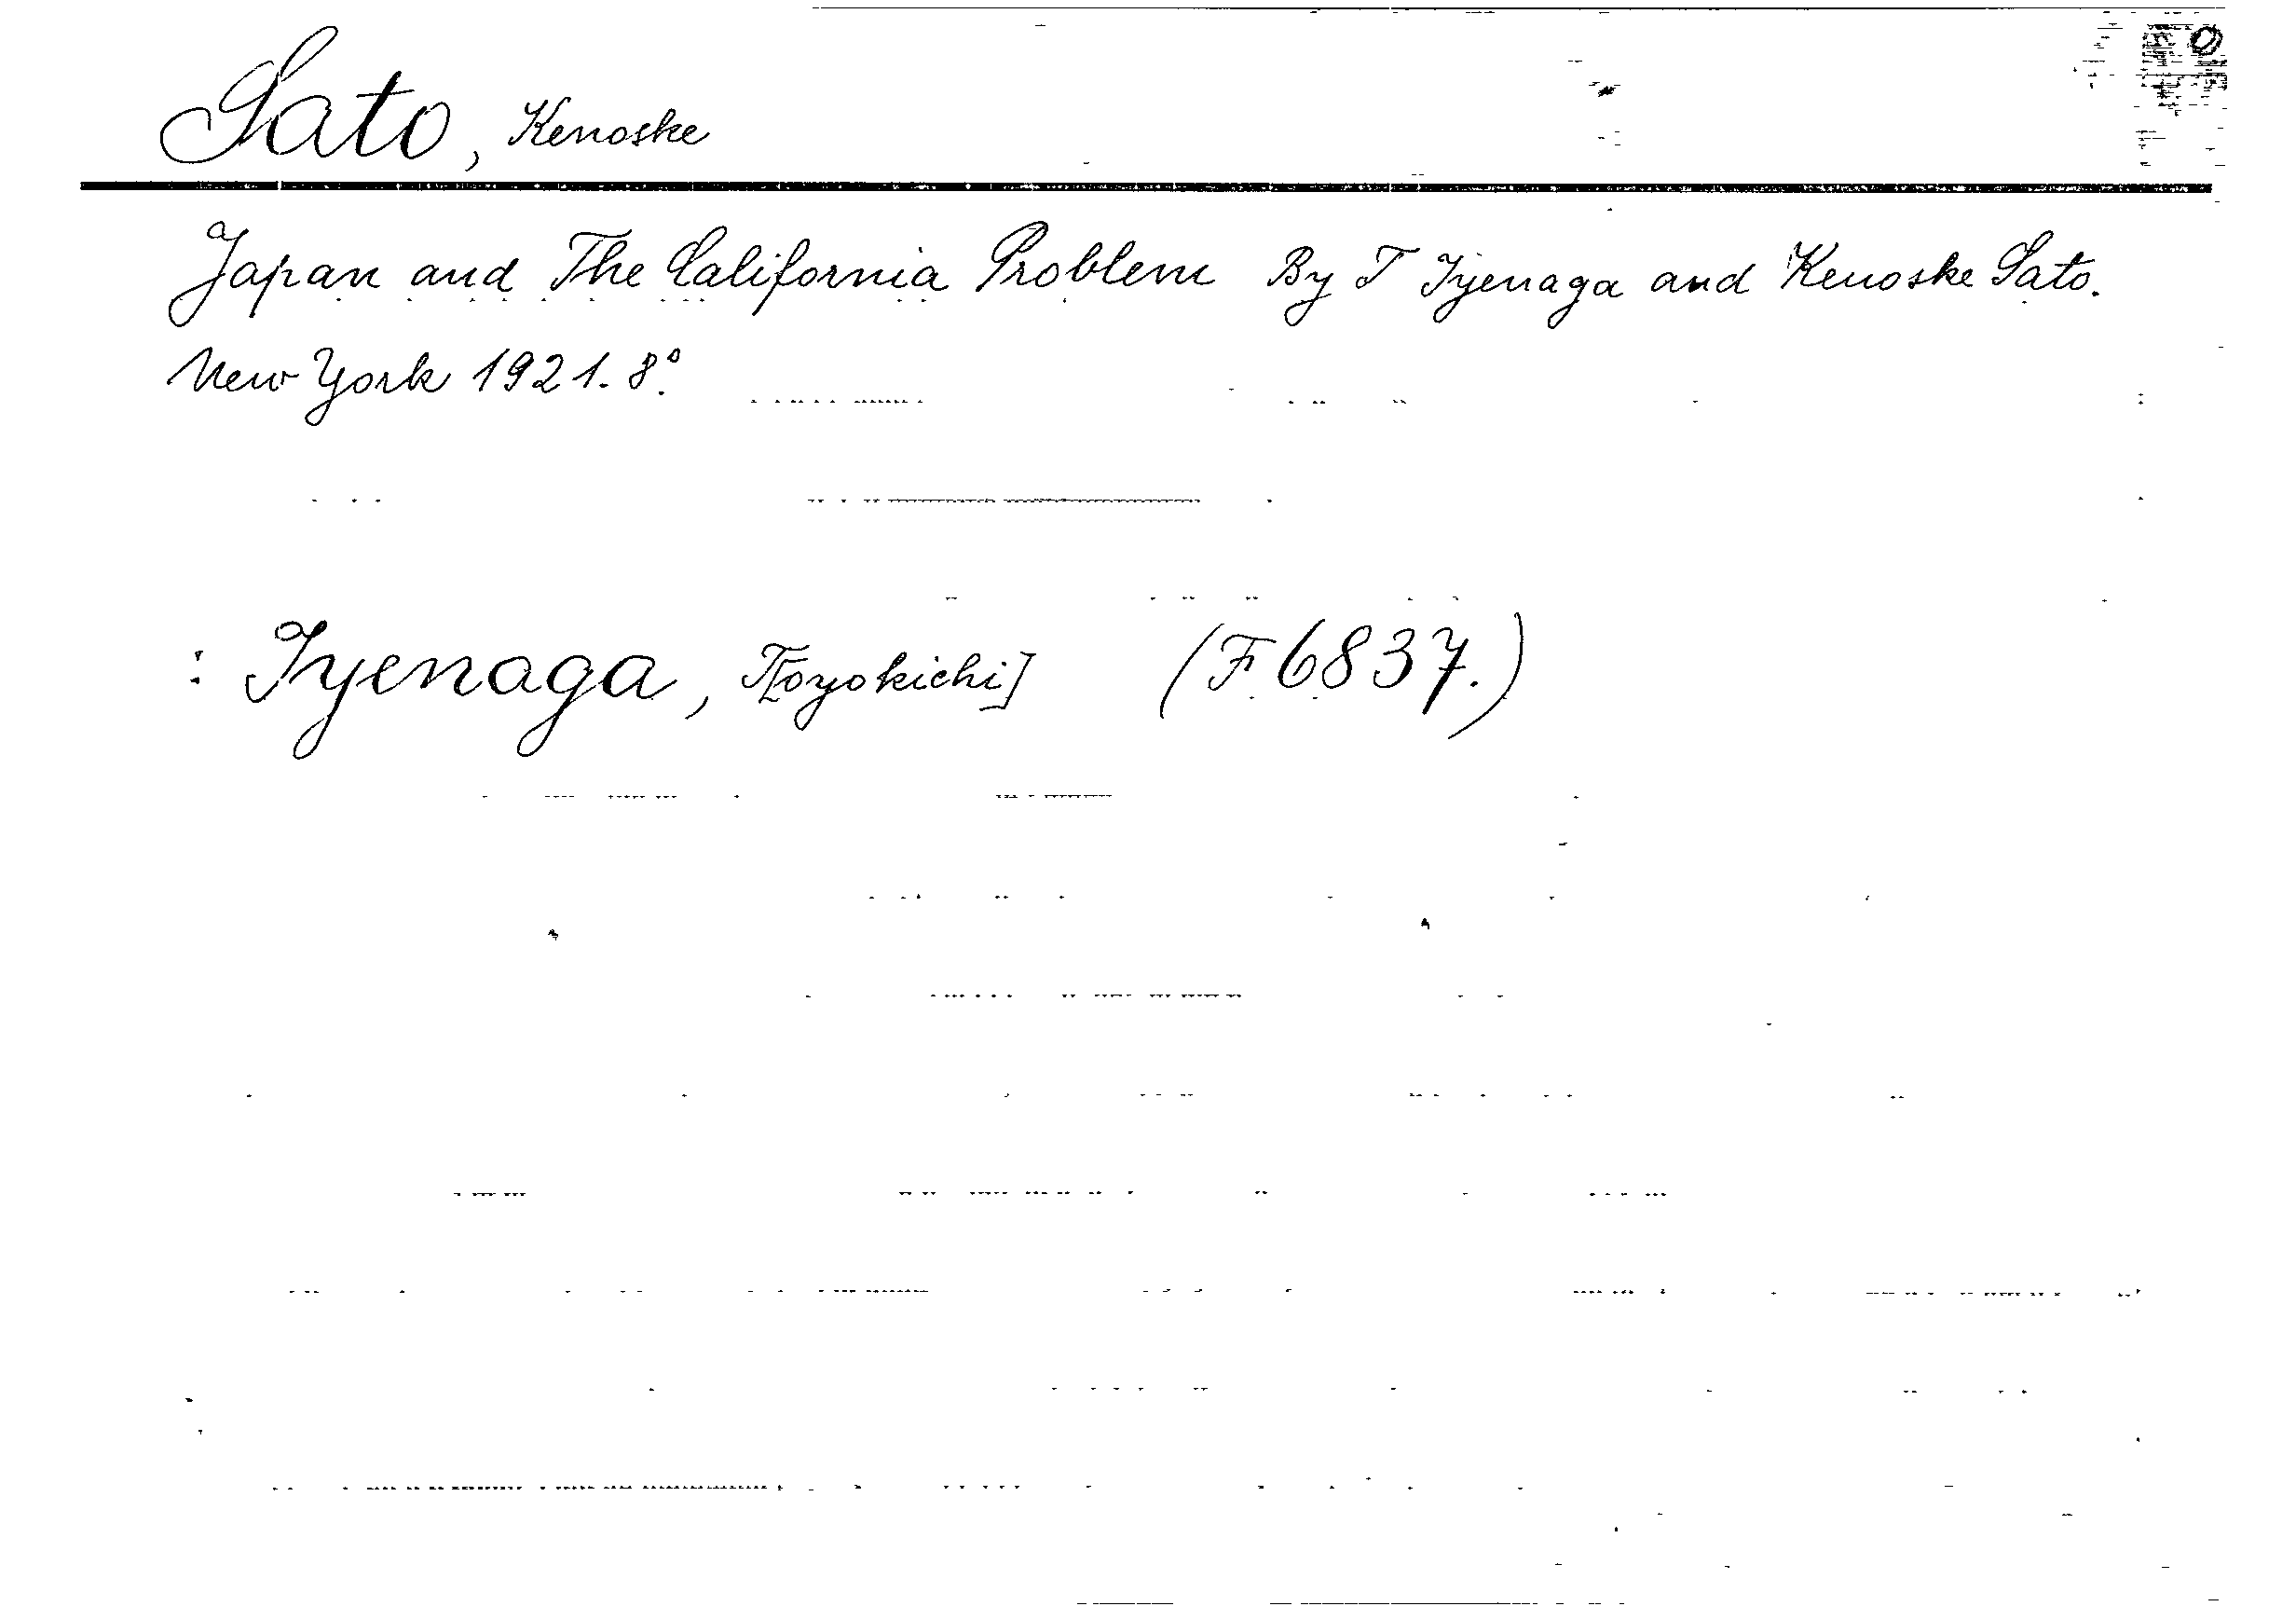 Sato, Kenoske
Japan and The California Problem By T Iyenaga and Kenoske Sato.
New York 1921. 8°.
: Iyenaga, T[oyokichi] (F 6837.)